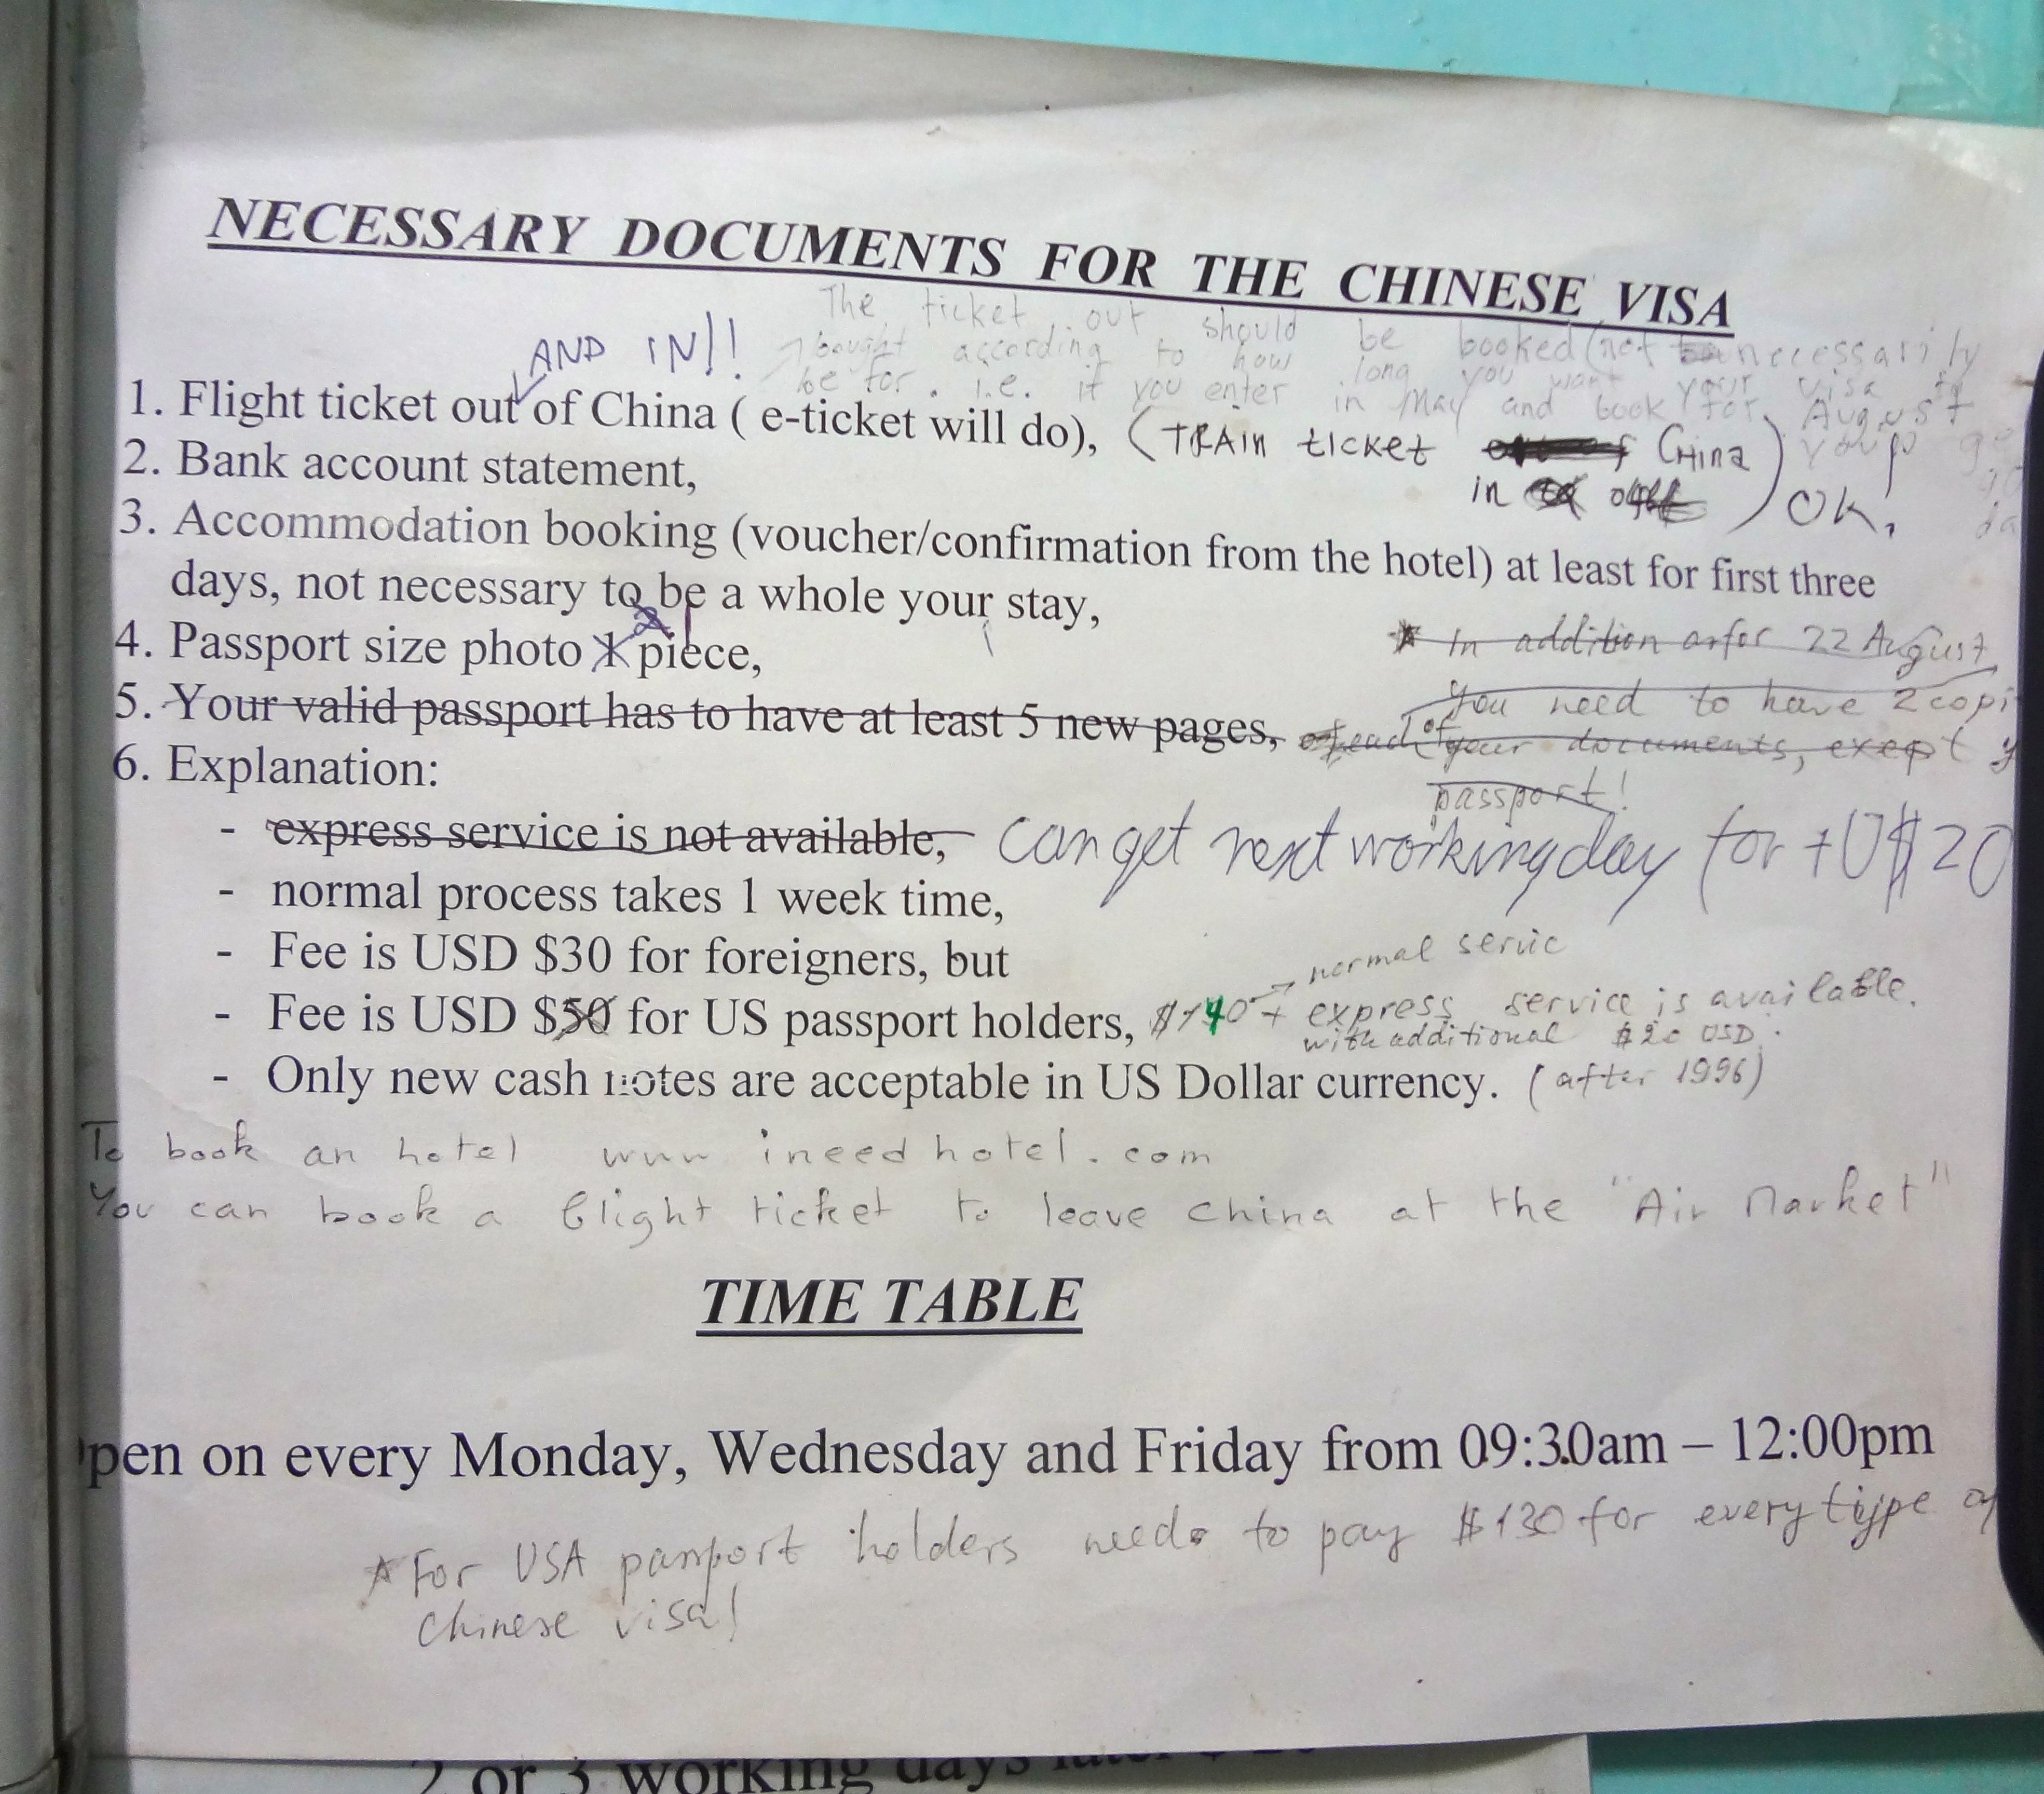 NECESSARY DOCUMENTS FOR THE CHINESE VISA
The ticket out should be booked (not necessarily
bought according to how long you want your visa to
be for. i.e. if you enter in May and book for August
AND IN!!
1. Flight ticket out of China ( e-ticket will do), (TRAIN ticket China)
in OK,
2. Bank account statement,
3. Accommodation booking (voucher/confirmation from the hotel) at least for first three
days, not necessary to be a whole your stay,
4. Passport size photo 1 2 piece,
* In addition as for 22 August,
you need to have 2 copi
5. Your valid passport has to have at least 5 new pages,
of your documents, exept y
passport!
6. Explanation:
- express service is not available, can get next working day for +U$20
- normal process takes 1 week time,
- Fee is USD $30 for foreigners, but
normal servic
- Fee is USD $50 for US passport holders, $140 + express service is available.
with additional $20 USD.
- Only new cash notes are acceptable in US Dollar currency. (after 1996)
To book an hotel www ineedhotel.com
You can book a flight ticket to leave china at the "Air Market"
TIME TABLE
pen on every Monday, Wednesday and Friday from 09:30am – 12:00pm
* For USA passport holders need to pay $130 for every type of
Chinese visa!
2 or 3 working days later $